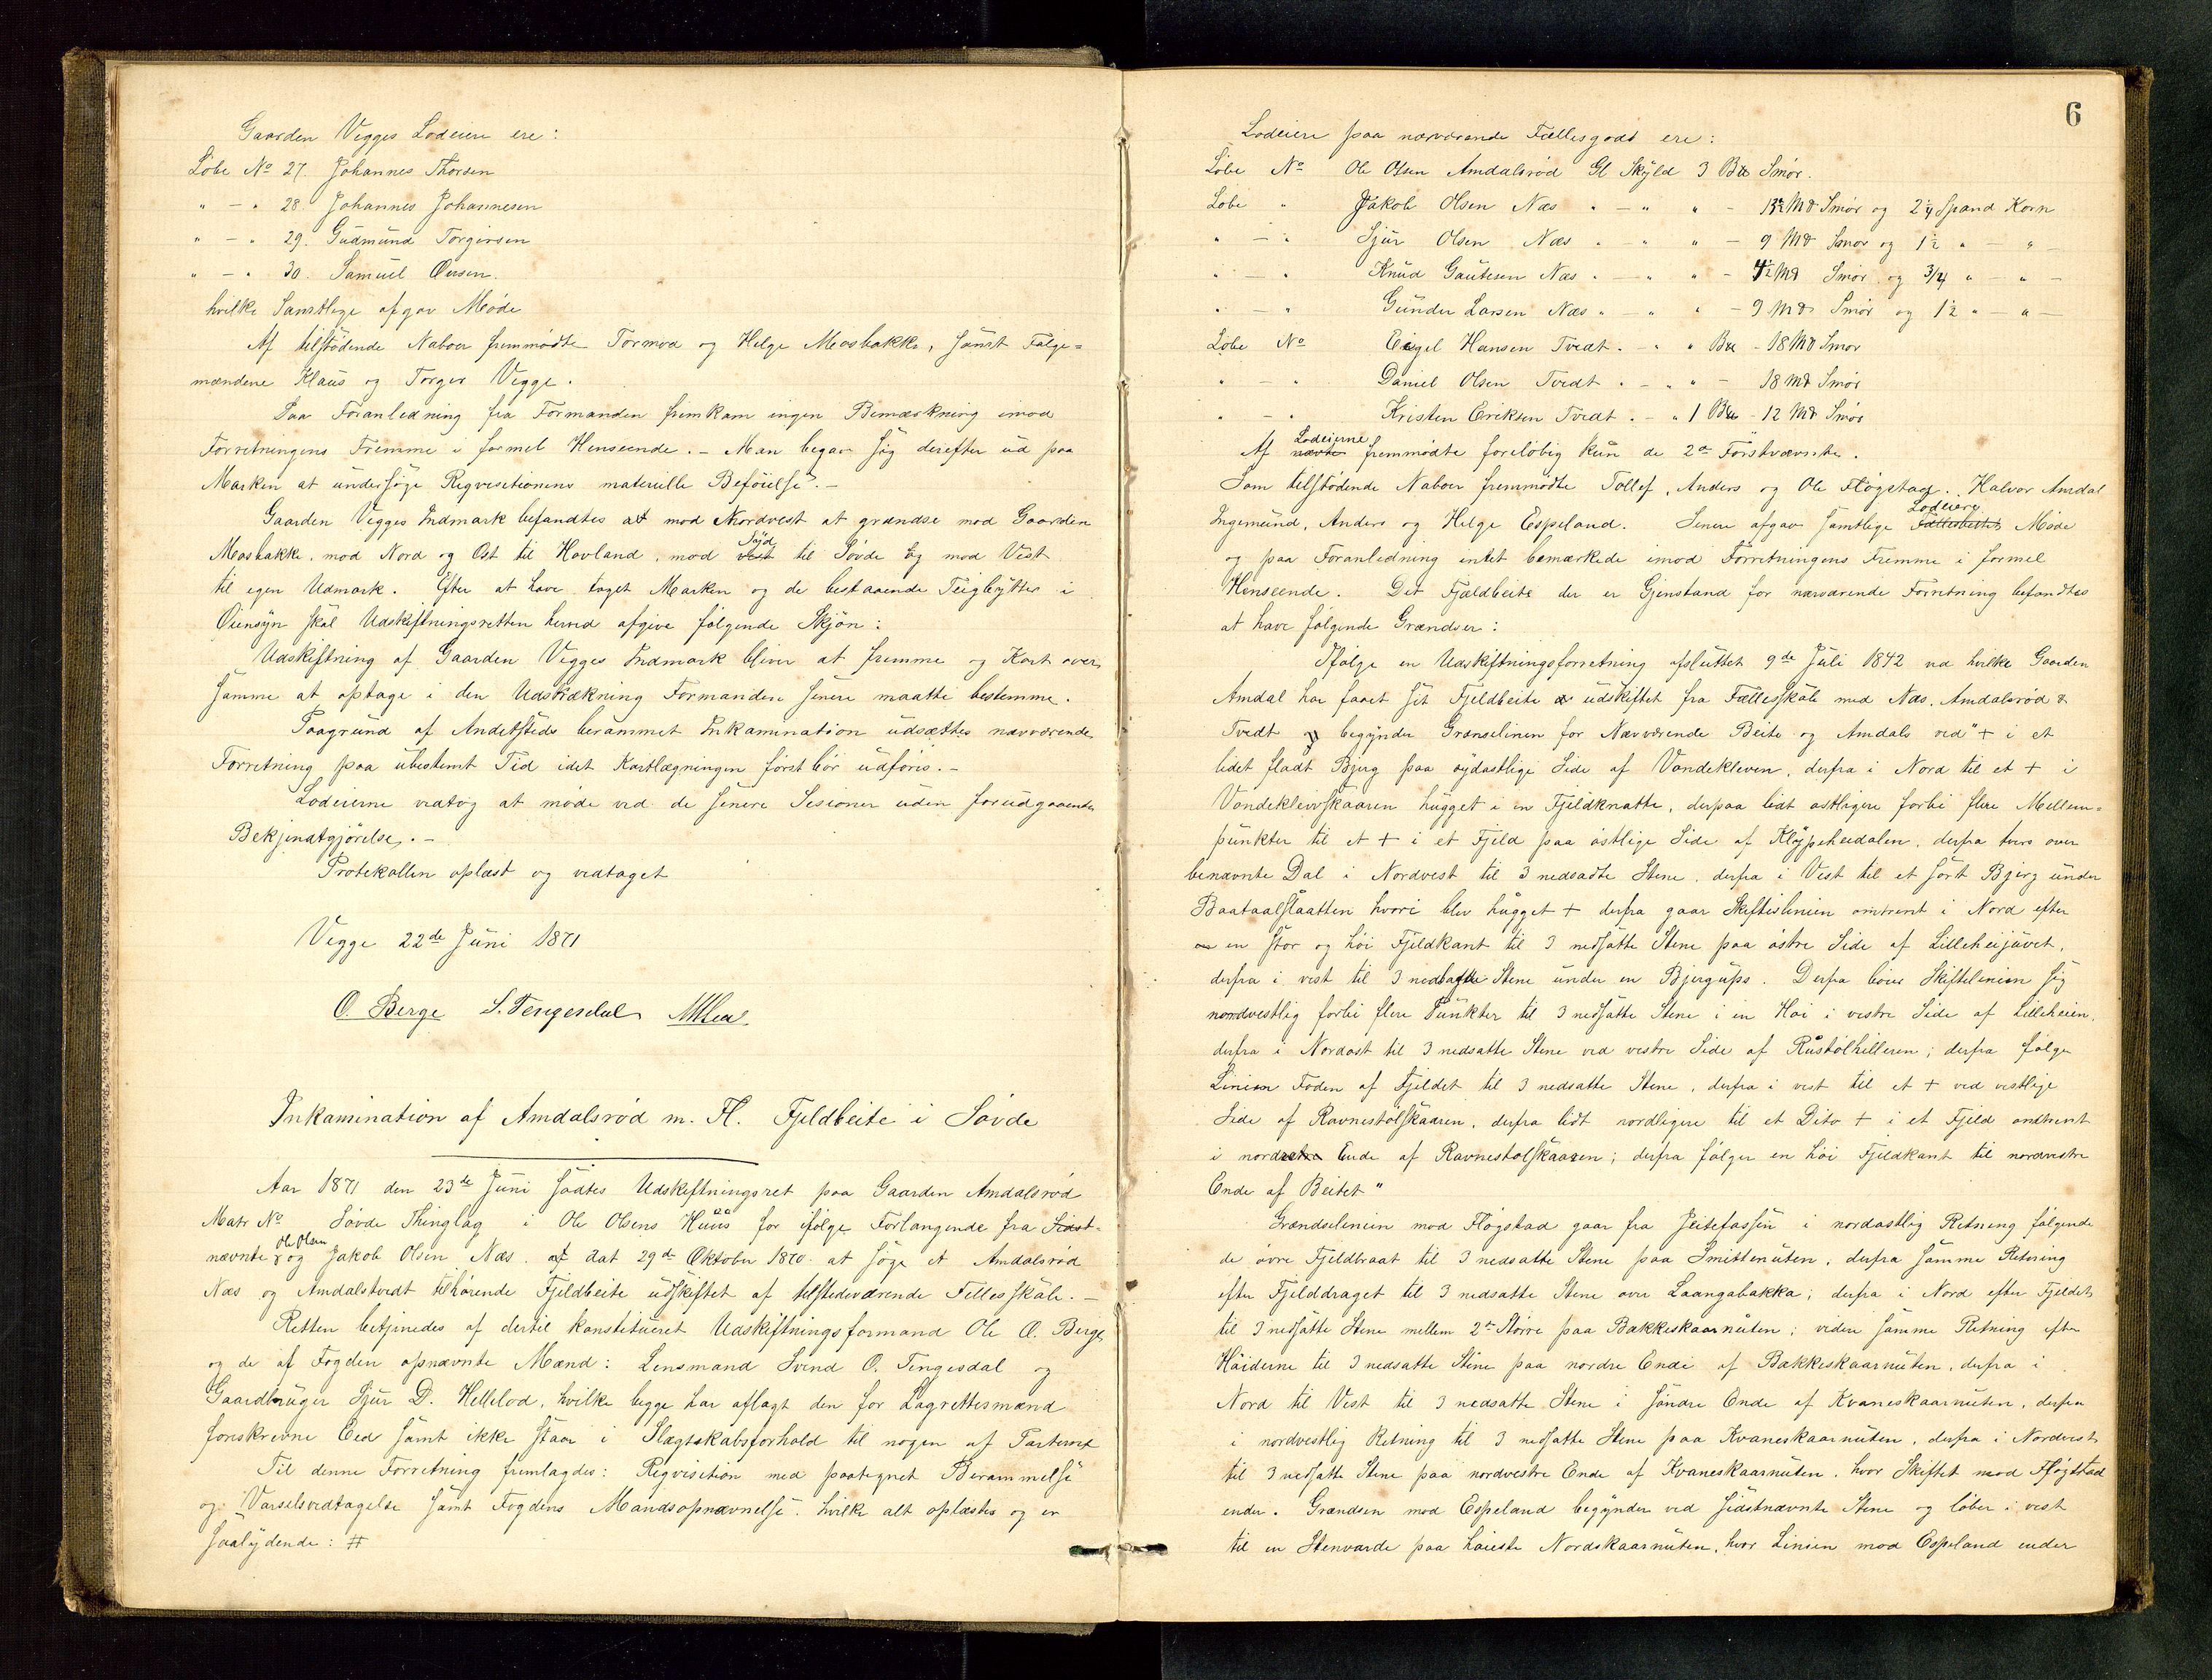 Gaarden Vegges Lodeiere ere:
Löbe No 27. Johannes Thorsen
" - " 28. Johannes Johannesen
" - " 29. Gudmund Torgersen
" - " 30. Samuel
hvilke Samtlige afgav Møde
Af tilstödende Naboer fremmödte Tormod og Helge Mosbakke, samt Følge=
mændene Klaus og Torger Vegge.
Paa Foranledning fra Formanden fremkom ingen Bemærkning imod
Forretningens Fremme i formel Henseende. - Man begav sig derefter ud paa
Marken at undersöge Reqvisitionens materielle Beföielse. -
Gaarden Vegges Indmark befandtes at mod Nordvest at grændse mod Gaarden
Mosbakke, mod Nord og Ost til Hovland, mod Syd til Søvde og mod Vest
til egen Udmark. Efter at have taget Marken og de bestaaende Teigbytter i
Öiensyn skal Udskiftningsretten herved afgive følgende Skjön:
Udskiftning af Gaarden Vegges Indmark bliver at fremme og Kart over
samme at optage i den Udstrækning Formanden senere maatte bestemme.
Paagrund af Andetsteds berammet Inkamination udsættes nærværende
Forretning paa ubestemt Tid idet Kartlægningen först bör udföres. -
Lodeierne vedtog at møde ved de senere Sesioner uden forudgaaende
Bekjendtgjörelse. -
Protokollen oplæst og vedtaget
Vegge 22de Juni 1871
O. Berge S. Tengesdal
Inkamination af Amdalsrød m. Fl. Fjeldbeite i Søvde
Aar 1871 den 23de Juni sadtes Udskiftningsret paa Gaarden Amdalsrød
Matr No Søvde Thinglag i Ole Olsens Huus for ifølge Forlangende fra Sidst-
nævnte og Ole Olsen Jakob Olsen Næs. af dat 29de Oktober 1870 at söge et Amdalsrød
Næs og Amdalstvedt tilhørende Fjeldbeite udskiftet af tilstedeværende Fellesskab. -
Retten betjenedes af dertil konstitueret Udskiftningsformand Ole O. Berge
og de af Fogden opnævnte Mænd: Lensmand Svend O. Tengesdal og
Gaardbruger Sjur D. Helleland, hvilke begge har aflagt den for Lagrettesmænd
forskrevne Eed samt ikke staar i Slægtskabsforhold til nogen af Parterne
Til denne Forretning fremlagdes: Reqvisition med paategnet Berammelse
og Varselsvedtagelse samt Fogdens Mandsopnævnelse. hvilke alt oplæstes og er
saalydende: #
6
Lodeiere paa nærværende Fællesgods ere:
Löbe No Ole Olsen Amdalsrød Gl Skyld 3 Smör.
Löbe " Jakob Olsen Næs " - " " - Smör og 2 1/4 Spand Korn
" - " Sjur Olsen Næs " - " " - 9 Smör og 1 1/2 " " -
" - " Knud Gautesen Næs " - " " - 4 1/2 Smör og 3/4 " - " -
" - " Gunder Larsen Næs " - " " - 9 Smör og 1 1/2 " - " -
Löbe No Hansen Tvedt. - " " - 18 Smör
" - " Daniel Olsen Tvedt " - " " - 18 Smör
" - " Kristen Eriksen Tvedt. - " 1 - 12 Smör
Af Lodeierne fremmödte foreløbig kun de 2de Förstnævnte.
Som tilstödende Naboer fremmødte Tollef, Anders og Ole Fløgstad. Halvor Amdal
Ingemund, Anders og Helge Espeland. Senere afgav samtlige Lodeiere Møde
og paa Foranledning intet bemærkede imod Forretningens Fremme i formel
Henseende. Det Fjeldbeite der er Gjenstand for nærværende Forretning befandtes
at have følgende Grændser:
Ifølge en Udskiftningsforretning afsluttet 9de Juli 1842 ved hvilke Gaarden
Amdal har faaet sit Fjeldbeite udskiftet fra Fællesskab med Næs, Amdalsrød &
Tvedt begynder Grænselinen for Nærværende Beite og Amdals ved "+ i et
lidet fladt Bjerg paa sydostlige Side af Vondekleven, derfra i Nord til et + i
Vondeklevskaaren hugget i en Fjeldknatte, derpaa lidt ostligere forbi flere Mellem=
punkter til et + i et Fjeld paa östlige Side af Kløypeheidalen, derfra tvers over
benævnte Dal i Nordvest til 3 nedsadte Stene, derfra i Vest til et sort Bjerg under
Baataalslaatten hvori blev hugget + derfra gaar Skiftelinien omtrent i Nord efter
en stor og höi Fjeldkant til 3 nedsatte Stene paa östre Side af Lilleheijuvet,
derfra i vest til 3 nedsatte Stene under en Bjergups. Derfra böier Skiftelinien sig
nordvestlig forbi flere Punkter til 3 nedsatte Stene i en Hei i vestre Side af Lilleheien,
derfra i Nordost til 3 nedsatte Stene ved vestre Side af Rustölhelleren; derfra følger
Linien Foden af Fjeldet til 3 nedsatte Stene, derfra i vest til et + ved vestlige
Side af Ravnestölskaaren, derfra lidt nordligere til et Dito + i et Fjeld omtrent
i nordre Ende af Ravnestolskaaren; derfra følger en höi Fjeldkant til nordvestre
Ende af Beitet"
Grændselinien mod Fløgstad gaar fra i nordostlig Retning følgende
de övre Fjeldbraat til 3 nedsatte Stene paa Smittenuten, derfra samme Retning
efter Fjelddraget til 3 nedsatte Stene over Laangabakka; derfra i Nord efter Fjeldet
til 3 nedsatte Stene mellem 2de Större paa Bakkeskaarnuten; videre samme Retning efter
Höiderne til 3 nedsatte Stene paa nordre Ende af Bakkeskaarnuten, derfra i
Nord til Vest til 3 nedsatte Stene i Søndre Ende af Kvaneskaarnuten, derfra
i nordvestlig Retning til 3 nedsatte Stene paa Kvaneskaarnuten, derfra i Nordvest
til 3 nedsatte Stene paa nordvestre Ende af Kvaneskaarnuten, hvor Skiftet mod Fløgstad
ender. Grændsen mod Espeland begynder ved sidstnævnte Stene og løber i vest
til en Stenvarde paa høieste Nordskaarnuten, hvor Linien mod Espeland ender